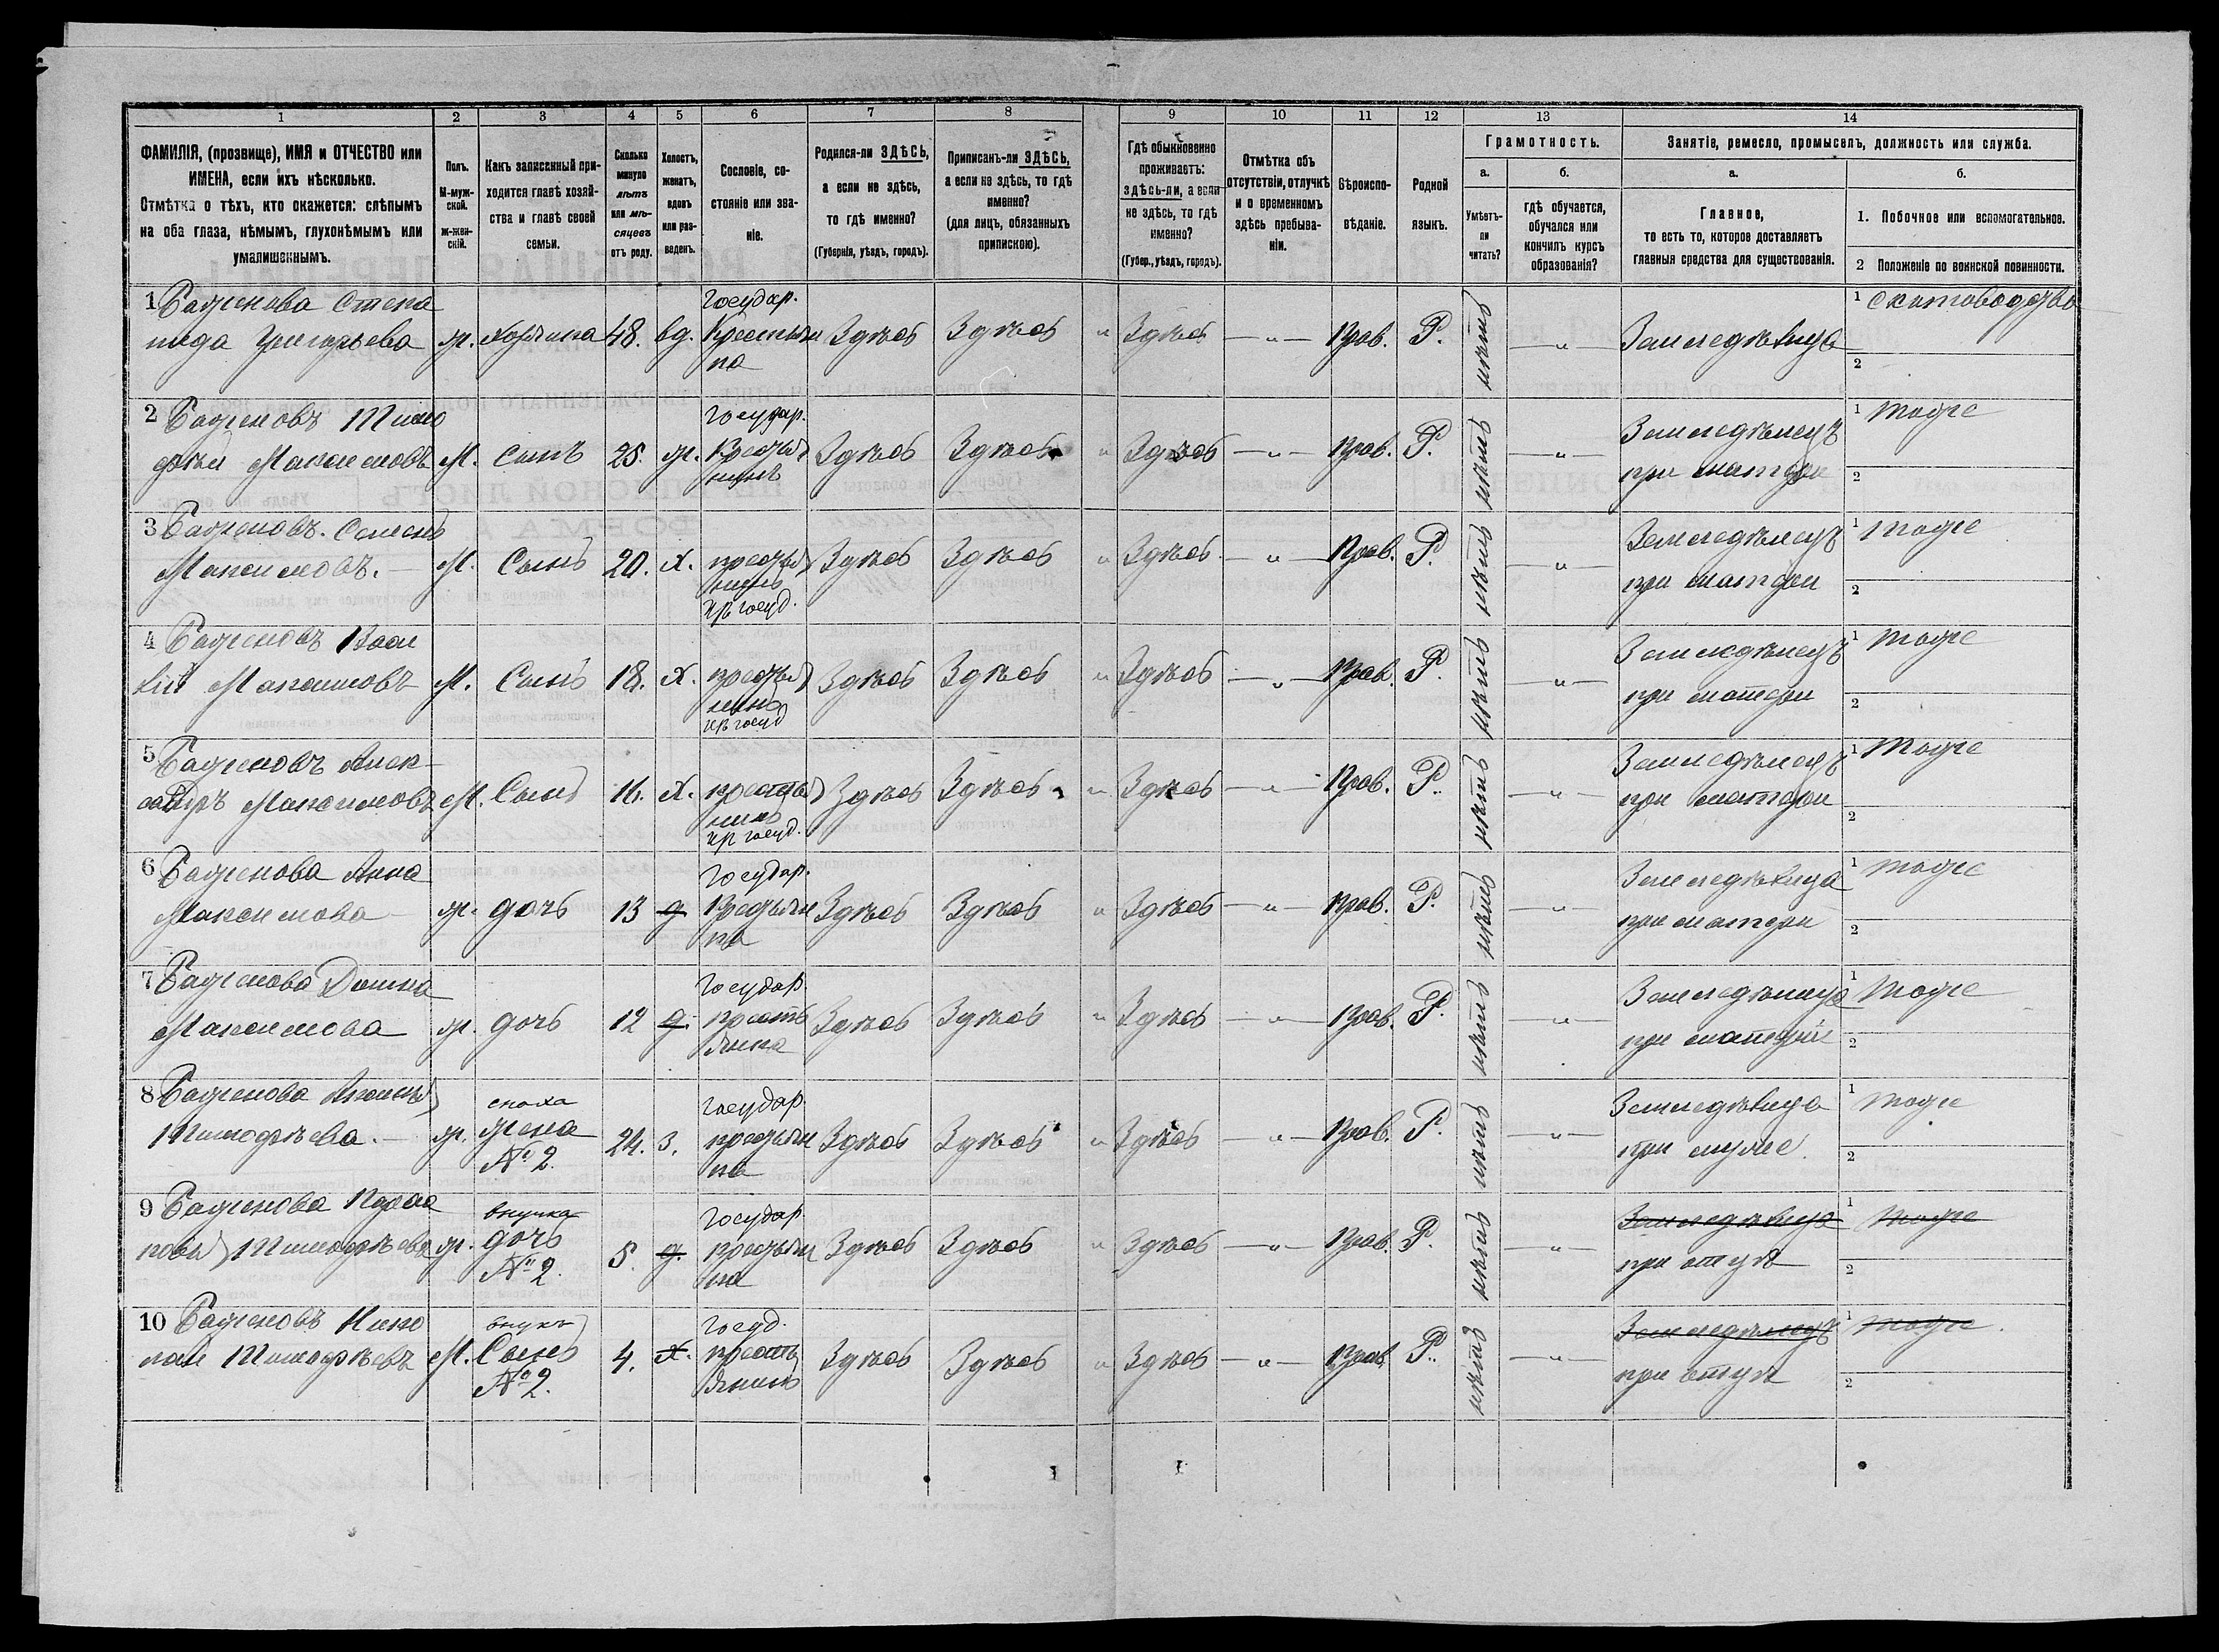 1 2 3 4 5 6 7 8 9 10 11 12 13 14
ФАМИЛІЯ, (прозвище), ИМЯ и ОТЧЕСТВО или ИМЕНА, если ихъ нѣсколько.
Отмѣтка о тѣхъ, кто окажется: слѣпымъ на оба глаза, нѣмымъ, глухонѣмымъ или умалишеннымъ.
Полъ.
М-мужской.
ж-женскій.
Какъ записанный приходится главѣ хозяйства и главѣ своей семьи.
Сколько минуло лѣтъ или мѣсяцевъ отъ роду.
Холостъ, женатъ, вдовъ или разведенъ.
Сословіе, состояніе или званіе.
Родился-ли ЗДѢСЬ, а если не здѣсь, то гдѣ именно?
(Губернія, уѣздъ, городъ).
Приписанъ-ли ЗДѢСЬ, а если не здѣсь, то гдѣ именно?
(для лицъ, обязанныхъ припискою).
Гдѣ обыкновенно проживаетъ: здѣсь-ли, а если не здѣсь, то гдѣ именно?
(Губер., уѣздъ, городъ).
Отмѣтка объ отсутствіи, отлучкѣ и о временномъ здѣсь пребываніи.
Вѣроисповѣданіе.
Родной языкъ.
Грамотность.
а.
Умѣетъ-ли читать?
б.
гдѣ обучается, обучался или кончилъ курсъ образованія?
Занятіе, ремесло, промыселъ, должность или служба.
а.
Главное,
то есть то, которое доставляетъ главныя средства для существованія.
б.
1. Побочное или вспомогательное.
2 Положеніе по воинской повинности.
1 Баженова Степа
нида Григорьева ж. хозяйка 48. вд. Государ. Крестьян
ка Здѣсь Здѣсь " Здѣсь — " — Прав. Р. нѣтъ — " — Земледѣлица 1 скотоводство
2
2 Баженовъ Тимо
фѣй Максимовъ М. сынъ 25. ж. Государ. Крестья
нинъ Здѣсь Здѣсь " Здѣсь — " — Прав. Р. нѣтъ — " — Земледѣлецъ
при матери 1 тоже
2
3 Баженовъ. Семенъ
Максимовъ. — М. Сынъ 20. Х. крестья
нинъ
изъ госуд. Здѣсь Здѣсь " Здѣсь — " — Прав. Р. нѣтъ — " — Земледѣлецъ
при матери 1 тоже
2
4 Баженовъ Васи
лій Максимовъ М. Сынъ 18. Х. крестья
нинъ
изъ госуд Здѣсь Здѣсь " Здѣсь — " — Прав. Р. нѣтъ — " — Земледѣлецъ
при матери 1 тоже
2
5 Баженовъ Алек-
сандръ Максимовъ М. Сынъ 16. Х. крестья
нинъ
изъ госуд. Здѣсь Здѣсь " Здѣсь — " — Прав. Р. нѣтъ — " — Земледѣлецъ
при матери 1 тоже
2
6 Баженова Анна
Максимова ж. дочь 13 д Государ.
Крестьян
ка Здѣсь Здѣсь " Здѣсь — " — Прав. Р. нѣтъ — " — Земледѣлица
при матери 1 тоже
2
7 Баженова Домна
Максимова ж. дочь 12 д. Государ.
кресть
янка Здѣсь Здѣсь " Здѣсь — " — Прав. Р. нѣтъ — " — Земледѣлица
при матери 1 тоже
2
8 Баженова
Тимофѣева. — ж. сноха
жена
№ 2. 24. з. Государ.
крестьян
ка Здѣсь Здѣсь " Здѣсь — " — Прав. Р. нѣтъ — " — Земледѣлица
при мужѣ. 1 тоже
2
9 Баженова Парас
ковья Тимофѣева ж. внучка
дочь
№ 2. 5. д. Государ
крестьян
ка Здѣсь Здѣсь " Здѣсь — " — Прав. Р. нѣтъ — " — Земледѣлица
при отцѣ 1 тоже
2
10 Баженовъ Нико
лай Тимофѣевъ М. внукъ
Сынъ
№ 2. 4. Х. Госуд.
кресть
янинъ Здѣсь Здѣсь " Здѣсь — " — Прав Р. нѣтъ — " — Земледѣлецъ
при отцѣ 1 тоже.
2